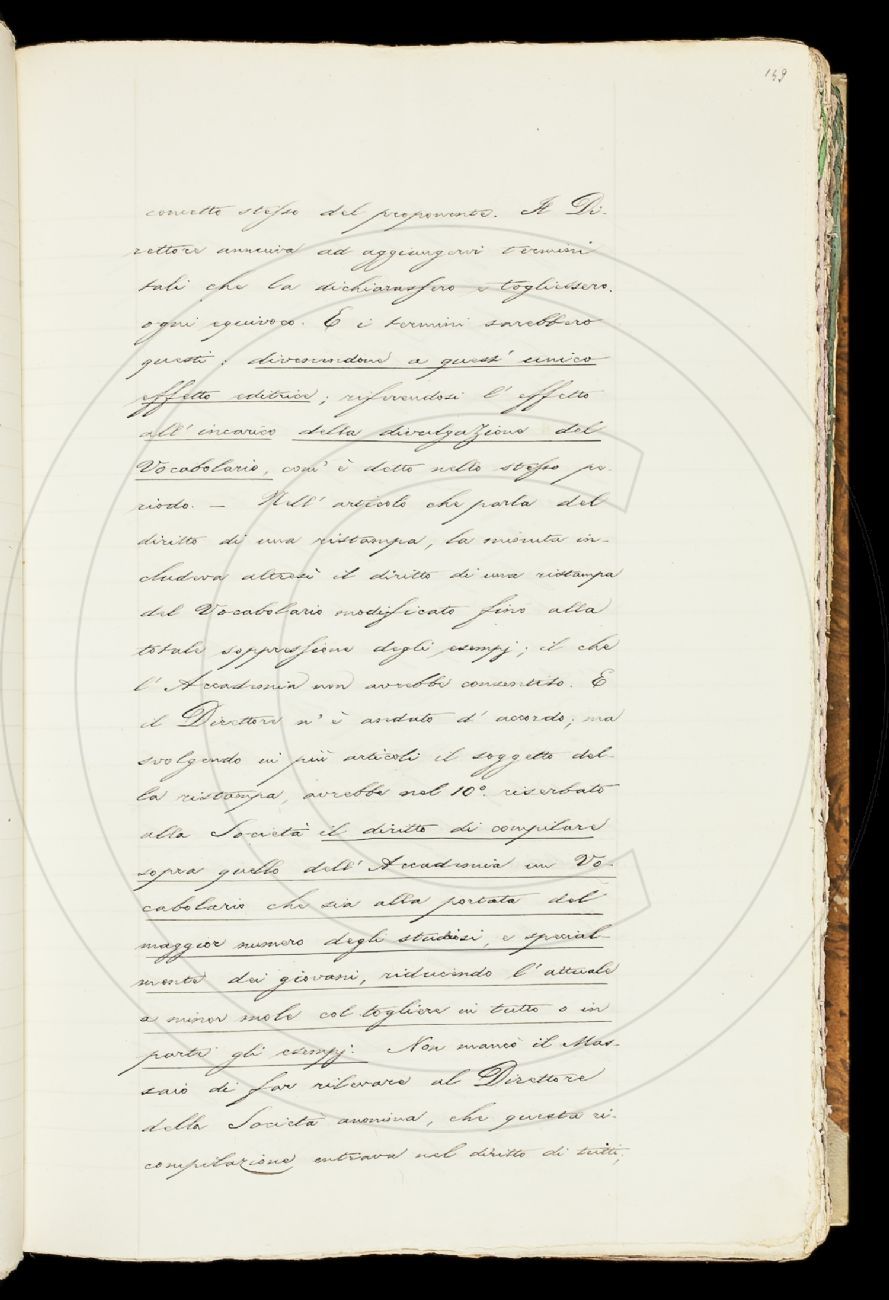 159
concetto stesso del proponente. Il Di-
rettore anneniva ad aggiungervi termini
tali che la dichiarassero e togliessero
ogni equivoco. E i termini sarebbero
questi: divenendone a quest' unico
effetto editrice; riferendosi l' effetto
all' incarico della divulgazione del
Vocabolario, com' è detto nello stesso pe-
riodo. — Nell' articolo che parla del
diritto di una ristampa, la minuta in-
chiudeva altresì il diritto di una ristampa
del Vocabolario modificato fino alla
totale soppressione degli esempj; il che
l' Accademia non avrebbe consentito. E
il Direttore n' è andato d' accordo; ma
svolgendo in più articoli il soggetto del-
la ristampa, avrebbe nel 10º. riserbato
alla Società il diritto di compilare
sopra quello dell' Accademia un Vo-
cabolario che sia alla portata del
maggior numero degli studiosi, e special-
mente dei giovani, riducendo l' attuale
a minor mole col togliere in tutto o in
parte gli esempj. Non mancò il Mas-
saio di far rilevare al Direttore
della Società anonima, che questa ri-
compilazione entrava nel diritto di tutti;